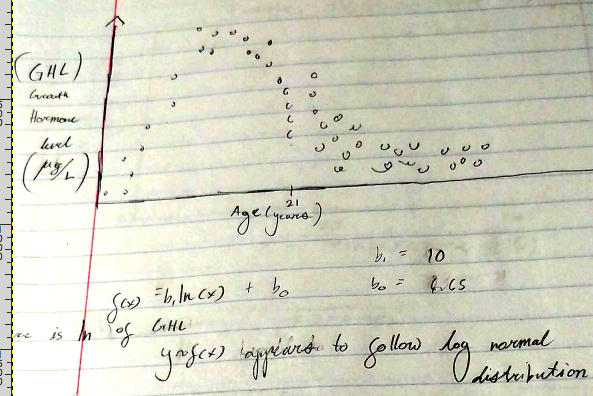 (GHL)
Growth
Hormone
level
(µg/L)
21
Age (years)
b₁ = 10
f(x) = b₁ ln(x) + b₀
b₀ =
is ln of GHL
y~f(x) appears to follow log normal
distribution